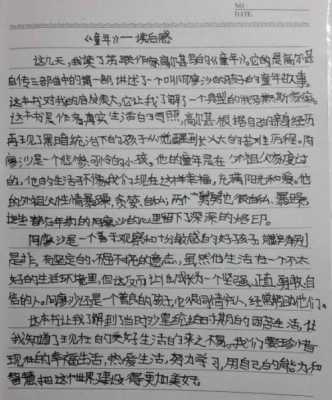 NO.
DATE
《童年》——读后感
这几天,我读了苏联作家高尔基写的《童年》。它的是高尔基
自传三部曲中的第一部,讲述了一个叫阿廖沙的孩子的童年故事。
这本书对我的启发很大,它让我了解了一个典型的俄罗斯家庭。
这本书是作者真实生活的写照,高尔基根据自己的亲身经历
再现了黑暗统治下的孩子从觉醒到长大的苦难历程。阿
廖沙是一个悲惨可怜的小孩。他的童年是在外祖父家度过
的,他的生活不像我们现在这样幸福,充满阳光和爱。他
的外祖父性情暴躁、贪婪自私;两个舅舅也很自私、
这些都在年幼的阿廖沙的心里留下了深深的烙印。
阿廖沙是一个善于观察和十分敏感的好孩子,
是非,有坚定的、倔强不屈的意志,虽然他生活在一个不太
好的生活环境里,但这反而让他成长为一个坚强、正直、勇敢、自
信的人。阿廖沙还是一个善良的孩子,它很同情穷人,经常帮助他们。
这本书让我了解到了当时沙皇统治时期的困苦生活,让
我知道了现在的美好生活的来之不易。我们要珍惜
现在的幸福生活,热爱生活,努力学习,用自己的能力和
智慧把这个世界建设得更加美好。